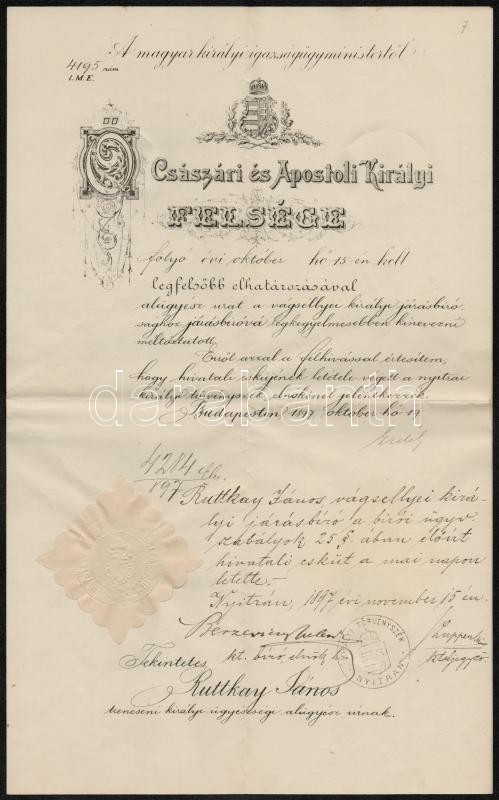 7
A magyar királyi igazságügyministertől
4195 szám
I. M. E.
Ő Császári és Apostoli Királyi
FELSÉGE
folyó évi október hó 15-én kelt
legfelsőbb elhatározásával
alügyész urat a vágsellyei királyi járásbiró-
sághoz járásbiróvá legkegyelmesebben kinevezni
méltóztatott.
Erről azzal a felhivással értesitem,
hogy hivatali esküjének letétele végett a nyitrai
királyi törvényszék elnökénél jelentkezzék.
Budapesten, 1897. október hó 17
Erdély
4284
897
Ruttkay János, vágsellyei kirá-
lyi járásbiró a birói ügyv.
szabályok 25 §. ában előirt
hivatali esküt a mai napon
letette.-
Nyitrán, 1897 évi november 15 én.
kt. biró, elnök h.
KIR. TÖRVÉNYSZÉK NYITRÁN
Tekintetes
Ruttkay János
trencséni királyi ügyészségi alügyész úrnak.
darabanth